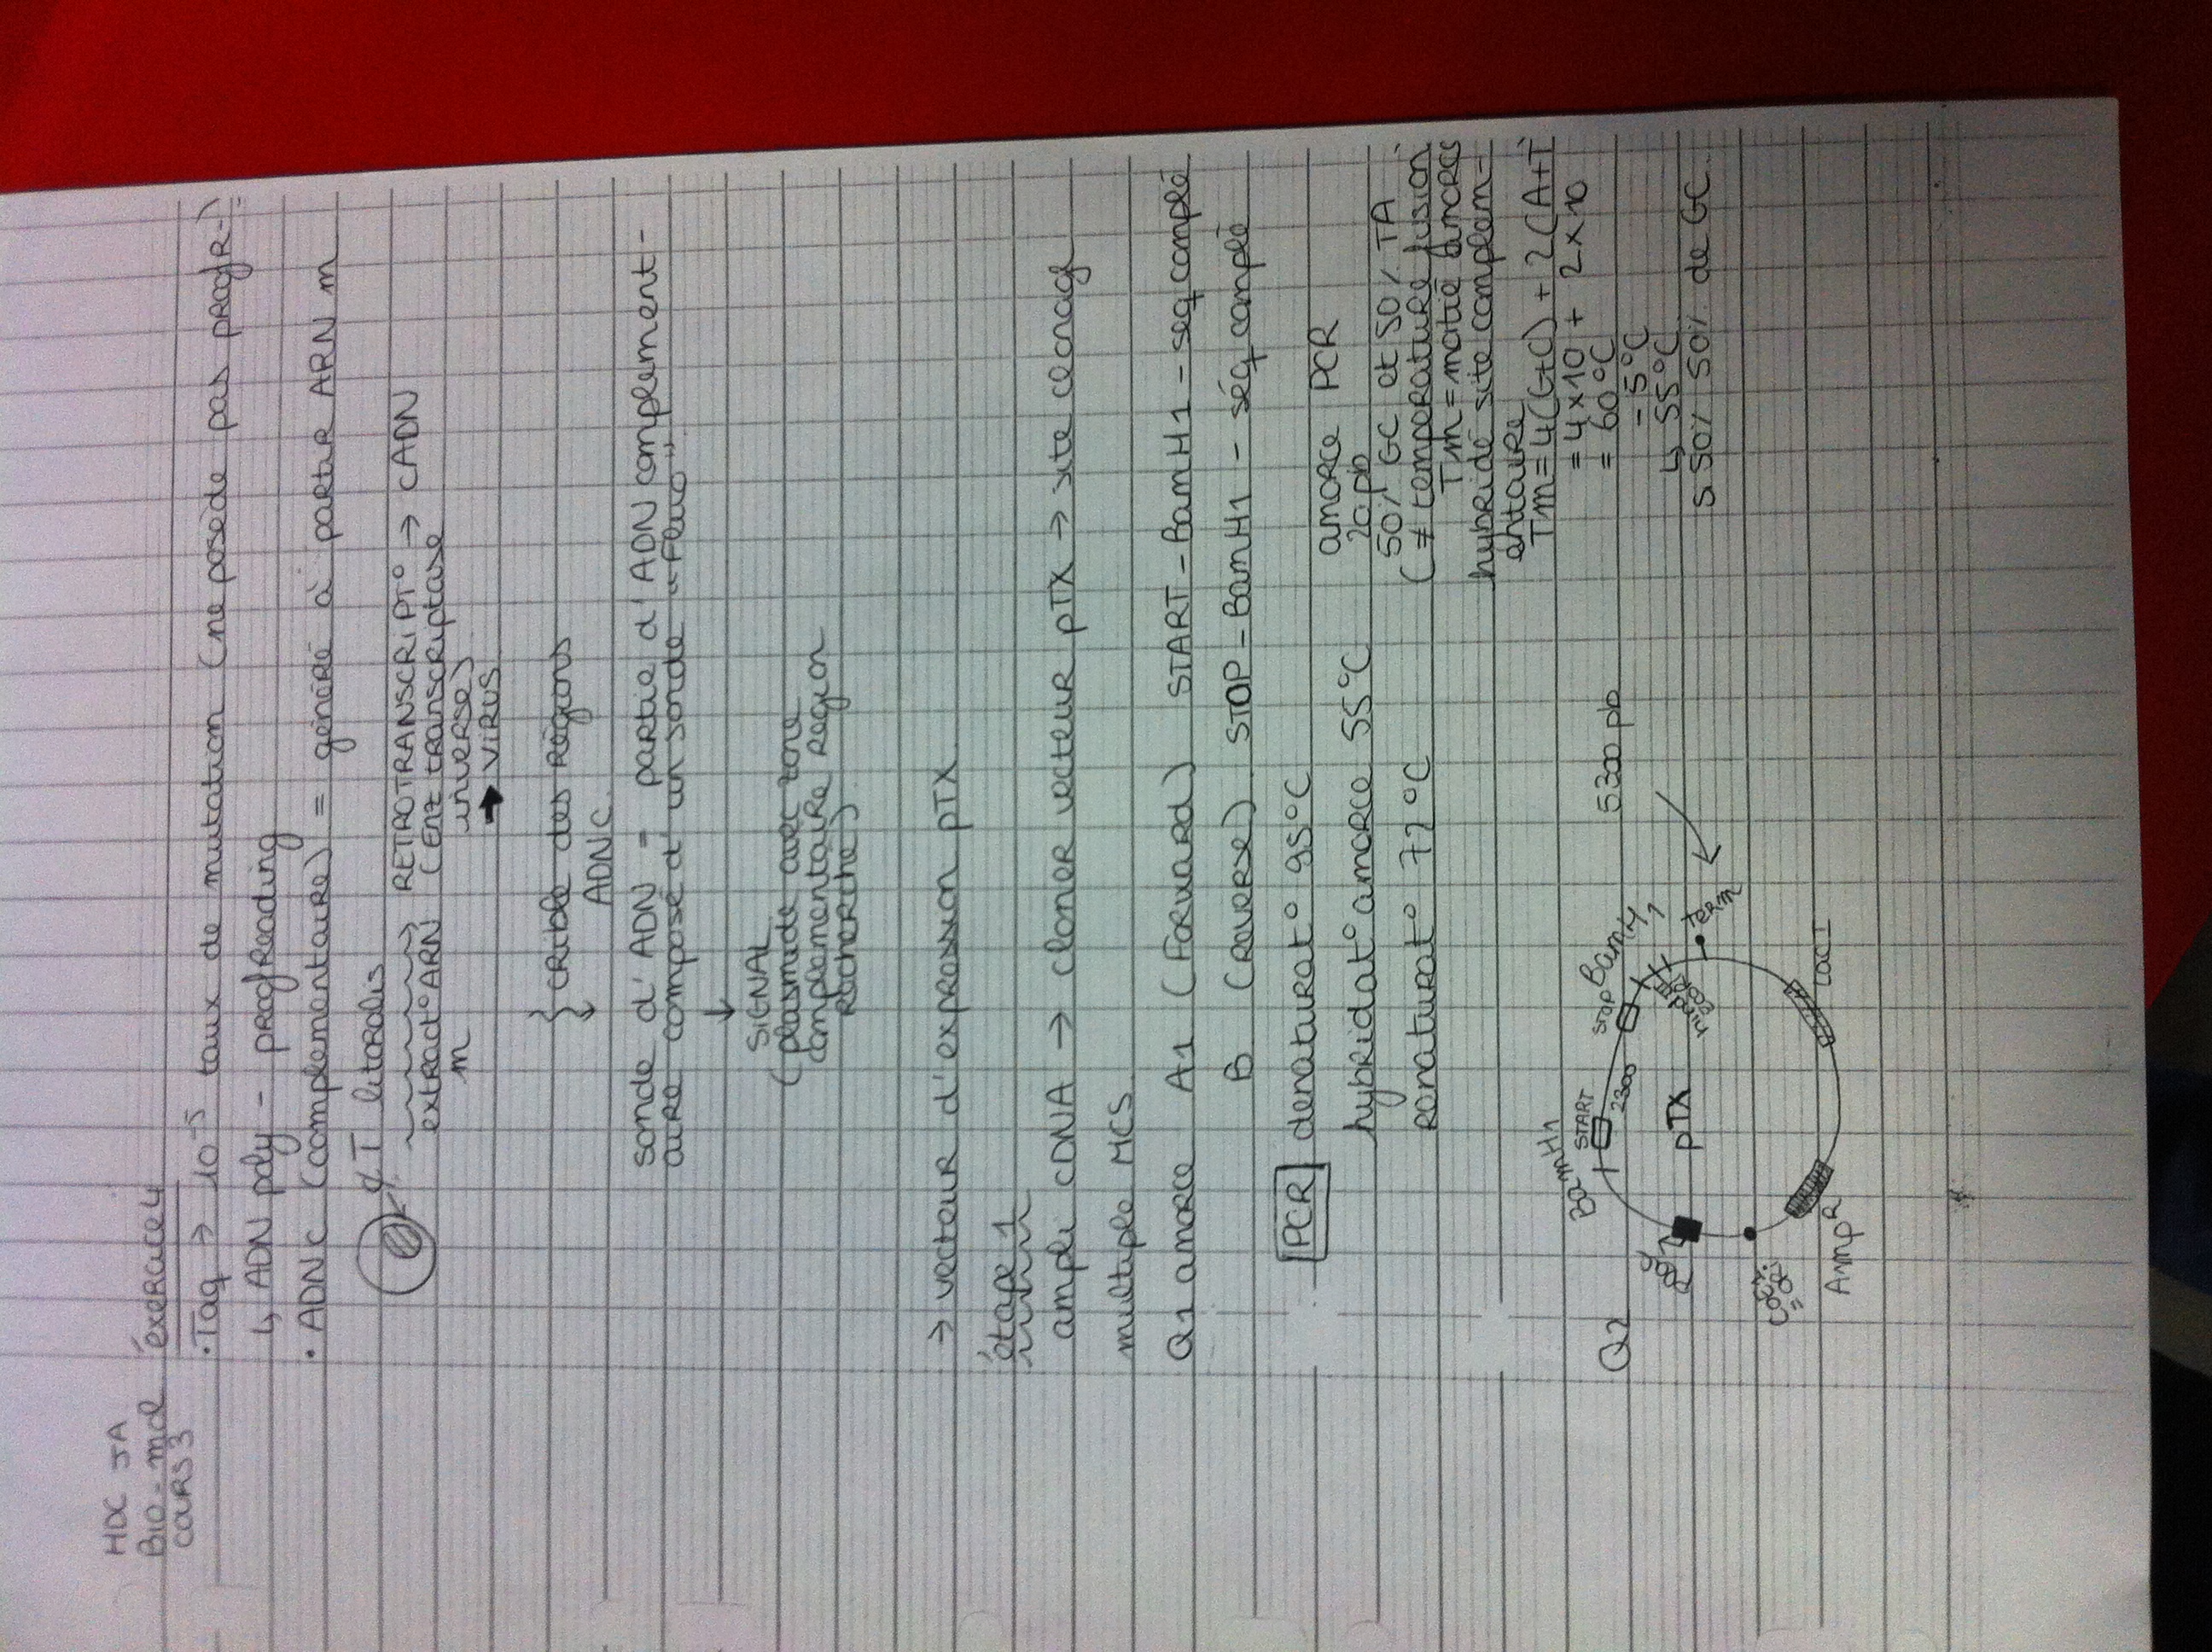 HDC JA
BIO-mol exercice 4
COURS 3
• Taq → 10⁻⁵ taux de mutation (ne posède pas proofR-)
↳ ADN poly - proofReading
• ADNc (complementaire) = généré à partir ARN m
T litoralis
extract° ARN m
RETROTRANSCRIPT° → cADN
(Enz transcriptase
inverse)
→ VIRUS
crible des Régions
ADNc.
sonde d'ADN = partie d'ADN complement-
aire composé d'un sonde "Fluo"
↓
SIGNAL
(plasmide avec zone
complementaire Region
Recherche)
→ vecteur d'expression pTX
étape 1
ampli cDNA → cloner vecteur pTX → site clonage
multiple MCS.
Q1 amorce A1 (Forward) START - BamH1 - seq complé
B (Reverse) STOP - BamH1 - séq complé
PCR denaturat° 95°C
hybridat° amorce 55°C
Renaturat° 72°C
amorce PCR
20 pb
50% GC et 50% TA
(≠ température fusion
Tm = moitié amorces
hybridé site complem-
entaire
Tm = 4(G+C) + 2(A+T
= 4x10 + 2x10
= 60°C
- 5°C
↳ 55°C
50% 50% de GC
Q2
BamH1
START
2300
stop
BamH1
5300 pb
pTX
Plac
hindIII
ECORI
TERM
COE1
= ORI
AmpR
LacI